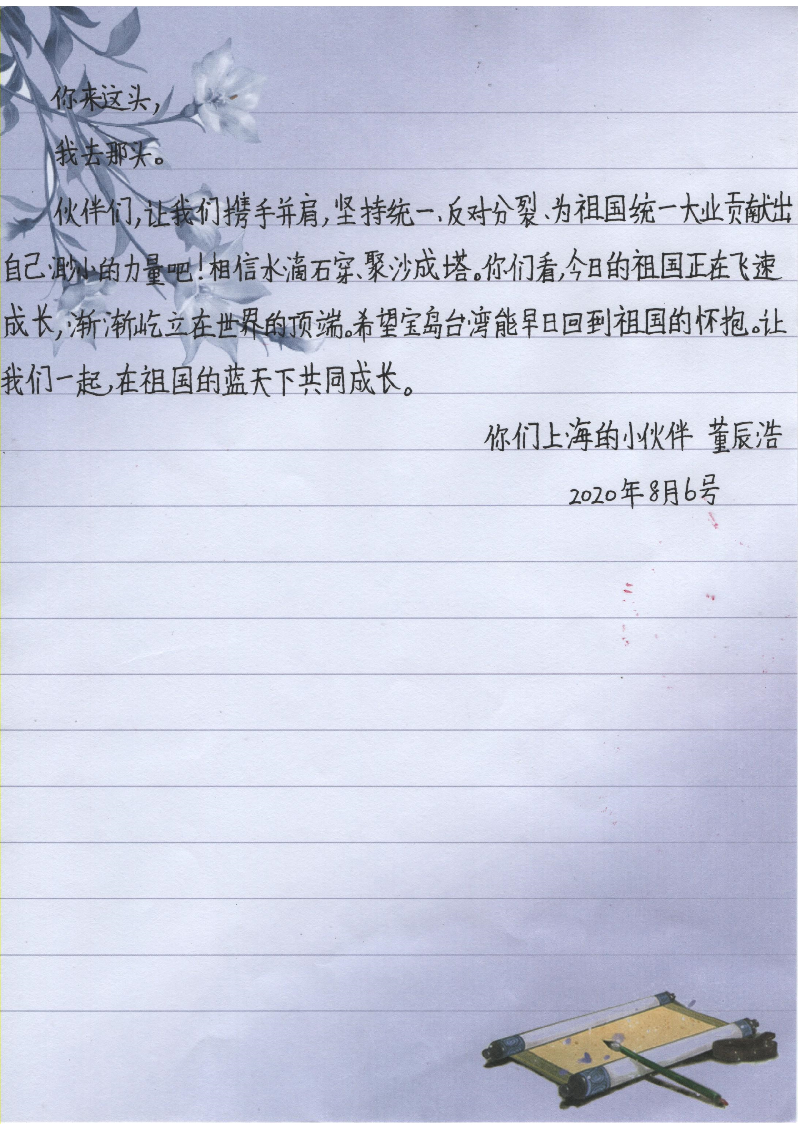 你来这头，
我去那头。
伙伴们，让我们携手并肩，坚持统一、反对分裂、为祖国统一大业贡献出
自己渺小的力量吧！相信水滴石穿、聚沙成塔。你们看，今日的祖国正在飞速
成长，渐渐屹立在世界的顶端。希望宝岛台湾能早日回到祖国的怀抱。让
我们一起，在祖国的蓝天下共同成长。
你们上海的小伙伴 董辰浩
2020年8月6号